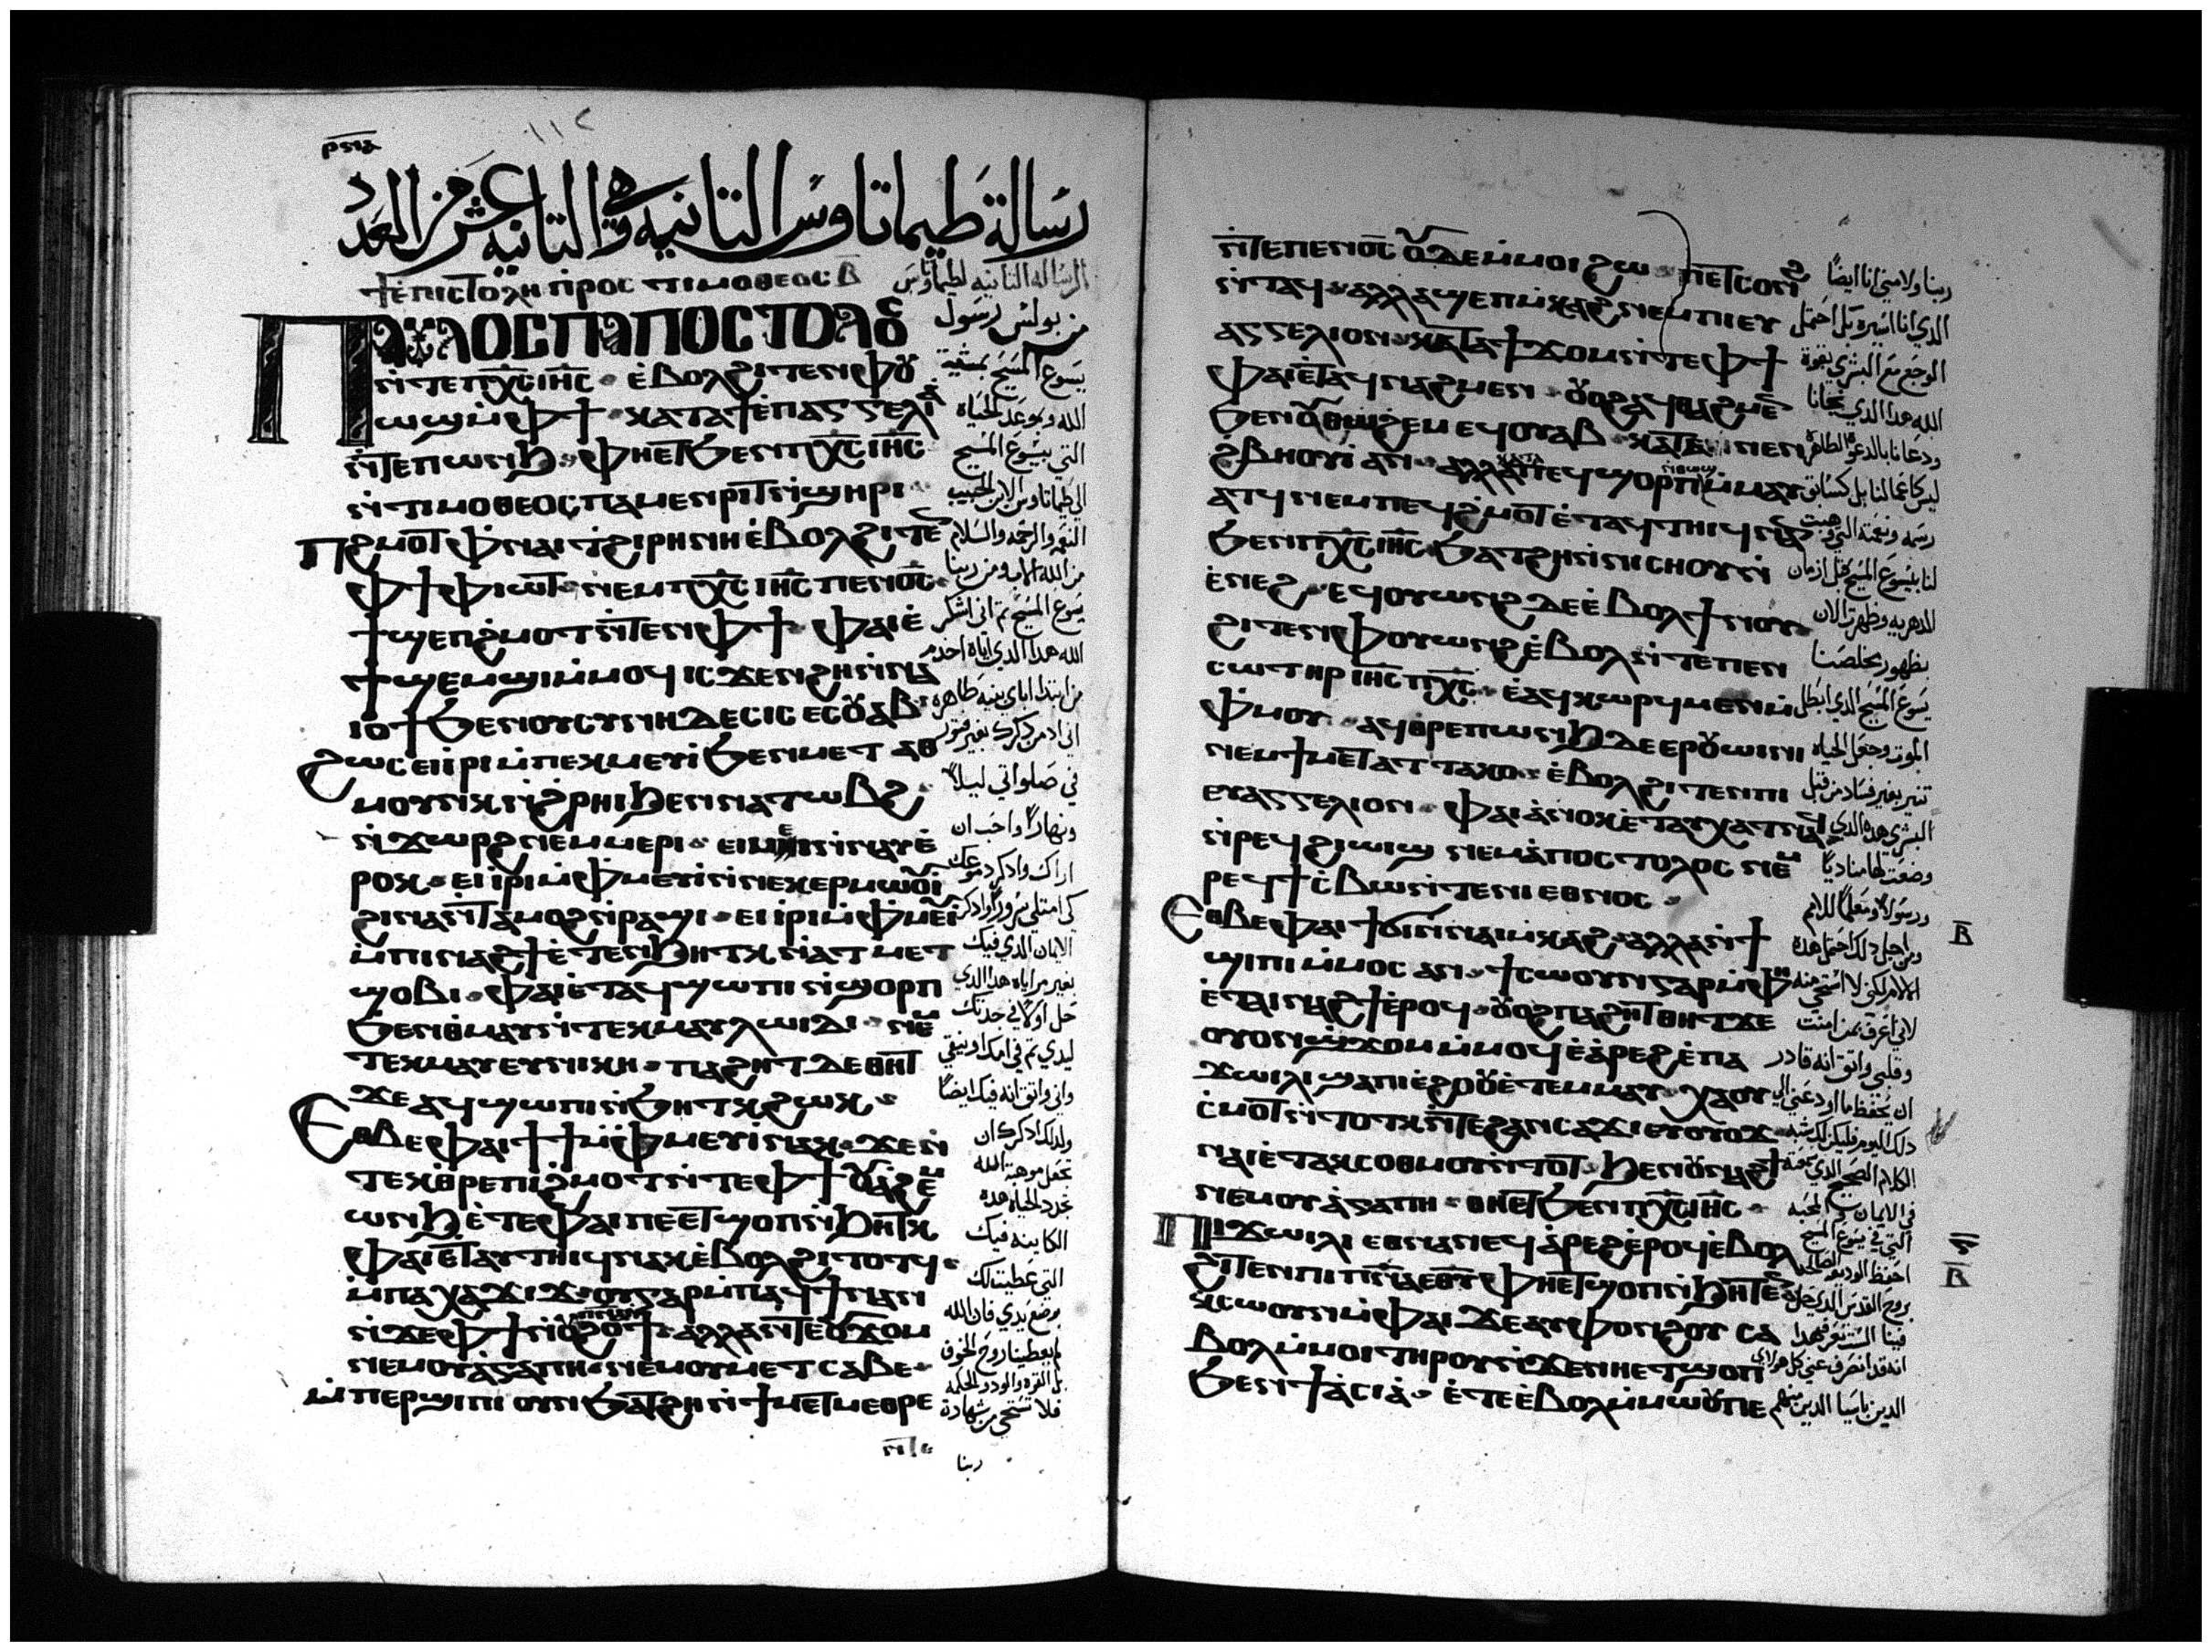 ⲣⲛⲓⲁ
١١٢
رسالة طيماتاوس التانيه وهي التانيه عشر من العدد
ϯⲉⲡⲓⲥⲧⲟⲗⲏ ⲡⲣⲟⲥ ⲧⲓⲙⲟⲑⲉⲟⲥ ⲃ̅
ⲡⲁⲩⲗⲟⲥ ⲡⲁⲡⲟⲥⲧⲟⲗⲟⲥ
ⲛ̀ⲧⲉ ⲡⲭ̅ⲥ̅ ⲓⲏ̅ⲥ̅ · ⲉ̀ⲃⲟⲗϩⲓⲧⲉⲛ ⲫⲟⲩ
ⲱϣ ⲙ̀ⲫϯ · ⲕⲁⲧⲁ ϯⲉⲡⲁⲅⲅⲉⲗⲓⲁ
ⲛ̀ⲧⲉ ⲡⲱⲛϧ · ⲫⲏⲉⲧϧⲉⲛ ⲡⲭ̅ⲥ̅ ⲓⲏ̅ⲥ̅
ⲛ̀ⲧⲓⲙⲟⲑⲉⲟⲥ ⲡⲁⲙⲉⲛⲣⲓⲧ ⲛ̀ϣⲏⲣⲓ ·
ⲡϩⲙⲟⲧ ⲫⲛⲁⲓ ⲧϩⲓⲣⲏⲛⲏ ⲉ̀ⲃⲟⲗϩⲓⲧⲉⲛ
ⲫϯ ⲫⲓⲱⲧ · ⲛⲉⲙ ⲡⲭ̅ⲥ̅ ⲓⲏ̅ⲥ̅ ⲡⲉⲛⲟ̅ⲥ̅ ·
ϯϣⲉⲡϩⲙⲟⲧ ⲛ̀ⲧⲉⲛ ⲫϯ · ⲫⲁⲓ ⲉ̀
ϯϣⲉⲙϣⲓ ⲙ̀ⲙⲟϥ ⲓⲥϫⲉⲛ ϩⲏ ⲛ̀ⲛⲁ
ⲓⲟϯ ϧⲉⲛ ⲟⲩⲥⲩⲛⲏⲇⲉⲥⲓⲥ ⲉⲥⲟⲩⲁⲃ
ϩⲱⲥ ⲉⲓⲓⲣⲓ ⲙ̀ⲡⲉⲕⲙⲉⲩⲓ ϧⲉⲛ ⲙⲉⲧⲁⲑ
ⲙⲟⲩⲛⲕ ⲛ̀ϩⲣⲏⲓ ϧⲉⲛ ⲛⲁⲧⲱⲃϩ ·
ⲛ̀ϫⲱⲣϩ ⲛⲉⲙ ⲙⲉⲣⲓ · ⲉⲓⲙⲉⲓ ⲛ̀ⲛⲁⲩ ⲉ̀
ⲣⲟⲕ · ⲉⲓⲓⲣⲓ ⲙ̀ⲫⲙⲉⲩⲓ ⲛ̀ⲛⲉⲕⲉⲣⲙⲱⲟⲩⲓ
ϩⲓⲛⲁ ⲛ̀ⲧⲁⲙⲟϩ ⲛ̀ⲣⲁϣⲓ · ⲉⲓⲓⲣⲓ ⲙ̀ⲫⲙⲉⲩⲓ
ⲙ̀ⲡⲓⲛⲁϩϯ ⲉ̀ⲧⲉⲛϧⲏⲧⲕ ⲛ̀ⲁⲧⲙⲉⲧ
ϣⲟⲃⲓ · ⲫⲁⲓ ⲉⲧⲁϥϣⲱⲡⲓ ⲛ̀ϣⲟⲣⲡ
ϧⲉⲛ ⲑⲙⲁⲩ ⲛ̀ⲧⲉⲕⲙⲁⲩ ⲗⲱⲓⲇⲓ · ⲛⲉⲙ
ⲧⲉⲕⲙⲁⲩ ⲉⲩⲛⲓⲕⲏ · ⲡⲁϩⲏⲧ ⲇⲉ ⲑⲏⲧ
ϫⲉ ⲁϥϣⲱⲡⲓ ⲛ̀ϧⲏⲧⲕ ϩⲱⲕ ·
ⲉⲑⲃⲉ ⲫⲁⲓ ϯϯ ⲙ̀ⲫⲙⲉⲩⲓ ⲛⲁⲕ · ϫⲉ ⲛ̀
ⲧⲉⲕⲑⲣⲉ ⲡⲓϩⲙⲟⲧ ⲛ̀ⲧⲉ ⲫϯ
ⲱⲛϧ ⲉ̀ⲧⲉ ⲫⲁⲓ ⲡⲉ ⲉⲧϣⲟⲡ ⲛ̀ϧⲏⲧⲕ
ⲫⲁⲓ ⲉⲧⲁⲩⲧⲏⲓϥ ⲛⲁⲕ ⲉ̀ⲃⲟⲗϩⲓⲧⲟⲧϥ ·
ⲙ̀ⲡⲁⲭⲁϫⲓϫ · ⲟⲩ ⲅⲁⲣ ⲙ̀ⲡⲁϥϯ ⲛⲁⲛ
ⲛ̀ϫⲉ ⲫϯ ⲛ̀ⲟϩⲟϯ · ⲁⲗⲗⲁ ⲛ̀ⲧⲉ ⲟⲩϫⲟⲙ
ⲛⲉⲙ ⲟⲩⲁ̀ⲅⲁⲡⲏ · ⲛⲉⲙ ⲟⲩⲙⲉⲧⲥⲁⲃⲉ ·
ⲙ̀ⲡⲉⲣϣⲓⲡⲓ ⲟⲩⲛ ϧⲁⲧϩⲏ ⲛ̀ϯⲙⲉⲧⲙⲉⲑⲣⲉ
الرساله التانيه لطيماتاوس
من بولس رسول
يسوع المسيح بمشية
الله وبوعد الحياه
التي بيسوع المسيح
الى طيماتاوس الابن الحبيب
النعمه والرحمه والسلام
من الله الاب ومن ربنا
يسوع المسيح تم اني اشكر
الله هدا الدي اياه اخدم
من ابتدا اباي بنيه طاهره
اني ادمن دكرك بغير فتور
في صلواتي ليلاً
ونهاراً واحب ان
اراك وادكر دموعك
كي امتلي سروراً وادكر
الايمان الدي فيك
بغير مراياه هدا الدي
حل اولاً في جدتك
ليدي تم في امك اونيقي
واني واتق انه فيك ايضاً
ولدلك ادكرك ان
تجعل موهبة الله
تجدد الحياه هده
الكاينه فيك
التي عطيت لك
بوضع يدي فان الله
لم يعطينا روح الخوف
بل القوه والود والحكمه
فلا تستحي من شهادة
ربنا
ⲛ̀ⲧⲉ ⲡⲉⲛⲟ̅ⲥ̅ ⲟⲩⲇⲉ ⲙ̀ⲙⲟⲓ ϩⲱ · ⲡⲉⲧⲥⲟⲛϩ
ⲛ̀ⲧⲁϥ · ⲁⲗⲗⲁ ϣⲉⲡ ⲙ̀ⲕⲁϩ ⲛⲉⲙ ⲡⲓⲉⲩ
ⲁⲅⲅⲉⲗⲓⲟⲛ · ⲕⲁⲧⲁ ϯϫⲟⲙ ⲛ̀ⲧⲉ ⲫϯ
ⲫⲁⲓ ⲉⲧⲁϥⲛⲁϩⲙⲉⲛ · ⲟⲩⲟϩ ⲁϥⲑⲁϩⲙⲉⲛ
ϧⲉⲛ ⲟⲩⲑⲱϩⲉⲙ ⲉϥⲟⲩⲁⲃ · ⲕⲁⲧⲁ ⲛⲉⲛ
ϩⲃⲏⲟⲩⲓ̀ ⲁⲛ · ⲁⲗⲗⲁ ⲕⲁⲧⲁ ⲡⲉϥϣⲟⲣⲡ ⲛ̀ⲑⲱϣ ⲙ̀ⲙⲁⲩ
ⲁⲧϥ ⲛⲉⲙ ⲡⲉϥϩⲙⲟⲧ ⲉ̀ⲧⲁϥⲧⲏⲓϥ ⲛⲁⲛ
ϧⲉⲛ ⲡⲭ̅ⲥ̅ ⲓⲏ̅ⲥ̅ · ϧⲁⲧϩⲏ ⲛ̀ⲛⲓⲥⲏⲟⲩ ⲛ̀
ⲉ̀ⲛⲉϩ · ⲉϥⲟⲩⲱⲛϩ ⲇⲉ ⲉ̀ⲃⲟⲗ ϯⲛⲟⲩ
ϩⲓⲧⲉⲛ ⲫⲟⲩⲱⲛϩ ⲉ̀ⲃⲟⲗ ⲛ̀ⲧⲉ ⲡⲉⲛ
ⲥⲱⲧⲏⲣ ⲓⲏ̅ⲥ̅ ⲡⲭ̅ⲥ̅ · ⲉ̀ⲁϥⲕⲱⲣϥ ⲙⲉⲛ ⲙ̀
ⲫⲙⲟⲩ · ⲁϥⲑⲣⲉ ⲡⲱⲛϧ ⲇⲉ ⲉⲣⲟⲩⲱⲓⲛⲓ
ⲛⲉⲙ ϯⲙⲉⲧⲁⲧⲧⲁⲕⲟ · ⲉ̀ⲃⲟⲗϩⲓⲧⲉⲛ ⲡⲓ
ⲉⲩⲁⲅⲅⲉⲗⲓⲟⲛ · ⲫⲁⲓ ⲁ̀ⲛⲟⲕ ⲉ̀ⲧⲁⲩⲭⲁⲧ ⲛⲁϥ
ⲛ̀ⲣⲉϥϩⲓⲱⲓϣ ⲛⲉⲙ ⲁ̀ⲡⲟⲥⲧⲟⲗⲟⲥ ⲛⲉⲙ
ⲣⲉϥϯⲥⲃⲱ ⲛ̀ⲧⲉ ⲛⲓⲉⲑⲛⲟⲥ ·
ⲉⲑⲃⲉ ⲫⲁⲓ ϯϭⲓ ⲛ̀ⲛⲁⲓ ⲙ̀ⲕⲁϩ · ⲁⲗⲗⲁ ⲛ̀ϯ
ϣⲓⲡⲓ ⲙ̀ⲙⲟⲥ ⲁⲛ · ϯⲥⲱⲟⲩⲛ ⲅⲁⲣ ⲙ̀ⲫⲏ
ⲉ̀ⲧⲁⲓⲛⲁϩϯ ⲉ̀ⲣⲟϥ · ⲟⲩⲟϩ ⲡⲁϩⲏⲧ ⲑⲏⲧ ϫⲉ
ⲟⲩⲟⲛ ϣϫⲟⲙ ⲙ̀ⲙⲟϥ ⲉ̀ⲁ̀ⲣⲉϩ ⲉ̀ⲡⲁ
ϫⲱⲓⲗⲓ ϣⲁ ⲡⲓⲉ̀ϩⲟⲟⲩ ⲉ̀ⲧⲉⲙⲙⲁⲩ · ⲭⲁ ⲟⲩ
ⲥ̀ⲙⲟⲧ ⲛ̀ⲧⲟⲧⲕ ⲛ̀ⲧⲉ ϩⲁⲛⲥⲁϫⲓ ⲉⲩⲟⲩⲟϫ
ⲛⲁⲓ ⲉ̀ⲧⲁⲕⲥⲟⲑⲙⲟⲩ ⲛ̀ⲧⲟⲧ · ϧⲉⲛ ⲟⲩⲛⲁϩϯ
ⲛⲉⲙ ⲟⲩⲁ̀ⲅⲁⲡⲏ · ⲑⲏⲉⲧϧⲉⲛ ⲡⲭ̅ⲥ̅ ⲓⲏ̅ⲥ̅ ·
ⲡⲓϫⲱⲓⲗⲓ ⲉⲑⲛⲁⲛⲉϥ ⲁ̀ⲣⲉϩ ⲉ̀ⲣⲟϥ ⲉ̀ⲃⲟⲗ
ϩⲓⲧⲉⲛ ⲡⲓⲡ̅ⲛ̅ⲁ̅ ⲉⲑ̅ⲩ̅ ⲫⲏⲉⲧϣⲟⲡ ⲛ̀ϧⲏⲧⲉⲛ
ⲕⲥⲱⲟⲩⲛ ⲙ̀ⲫⲁⲓ ϫⲉ ⲁⲩⲫⲟⲛϩⲟⲩ ⲥⲁ
ⲃⲟⲗ ⲙ̀ⲙⲟⲓ ⲧⲏⲣⲟⲩ ⲛ̀ϫⲉ ⲛⲏⲉⲧϣⲟⲡ
ϧⲉⲛ ϯⲁ̀ⲥⲓⲁ̀ · ⲉ̀ⲧⲉ ⲉ̀ⲃⲟⲗ ⲙ̀ⲙⲱⲟⲩ ⲡⲉ
ربنا ولا مني انا ايضاً
الدي انا اسيره بل احتمل
الوجع مع البشرى بقوة
الله هدا الدي نجانا
ودعانا بالدعوة الطاهره
ليس كاعمالنا بل كسابق
رسمه ونعمته التي وهبت
لنا بيسوع المسيح قبل ازمان
الدهريه وظهرت الان
بظهور مخلصنا
يسوع المسيح الدي ابطل
الموت وجعل الحياه
تنير بغير فساد من قبل
البشرى هده الدي
وضعت لها مناديًا
ورسولاً ومعلماً للامم
ومن اجل دلك احتمل هده
الالام لكني لا استحي منه
لاني اعرف بمن امنت
وقلبي واتق انه قادر
ان يحفظ ما اودعني الى
دلك اليوم فليكن لك شبه
الكلام الصحيح الدي سمعته
في الايمان والمحبه
التي في يسوع المسيح
احفظ الوديعه الصالحه
بروح القدس الدي حل
فينا الست تعرف هدا
انه قد انصرف عني كل هولاي
الدين باسيا الدين منهم
ⲃ̅
ⲋ̅
ⲃ̅